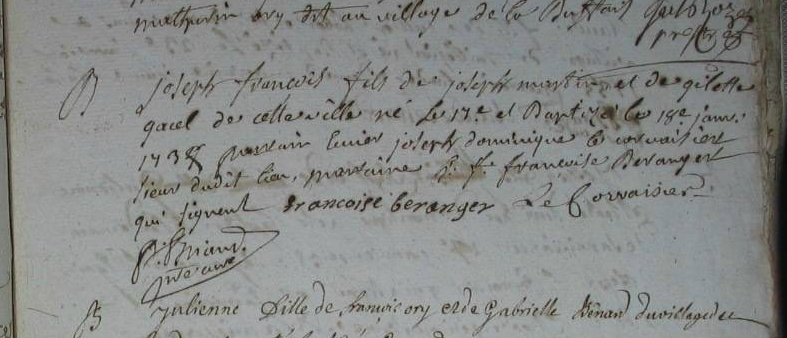 mathurin ory dit au village de la Buffais
B joseph francois fils de joseph martin et de gilette
gacel de cette ville né le 17e et Baptizé le 18e janv:
1738 parrain ecuier joseph dominique le corvaisier
sieur dudit lieu, marraine francoise Beranger
qui signent francoise beranger Le Corvaisier
B julienne fille de françois ory et de Gabrielle Bénard du village de